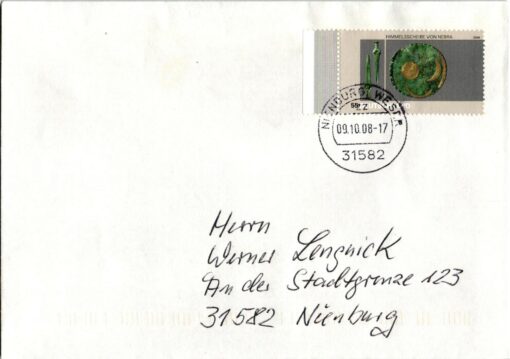 HIMMELSSCHEIBE VON NEBRA
2008
55
NIENBURG, WESER
zz
09.10.08-17
31582
Herrn
Werner Lengnick
An der Stadtgrenze 123
31582 Nienburg